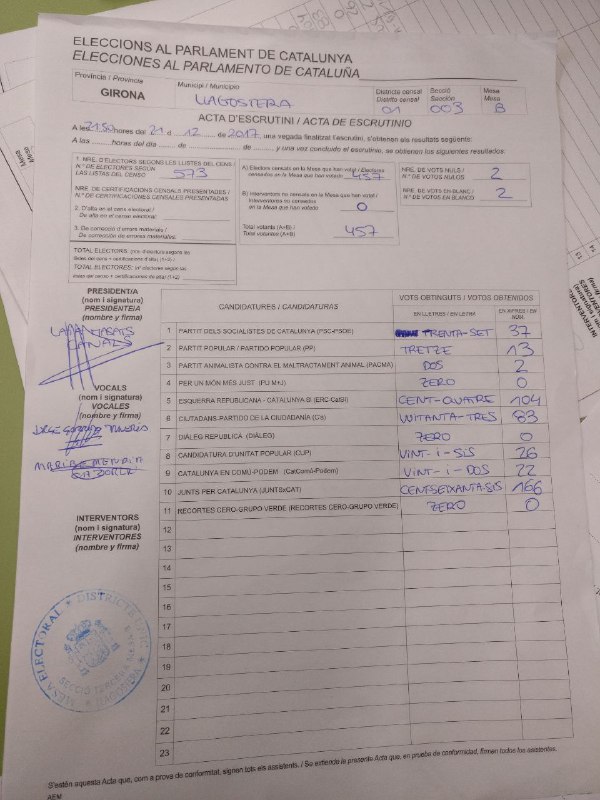 ELECCIONS AL PARLAMENT DE CATALUNYA
ELECCIONES AL PARLAMENTO DE CATALUÑA
Província / Provincia
GIRONA
Municipi / Municipio
LLAGOSTERA
Districte censal
Distrito censal
01
Secció
Sección
003
Mesa
Mesa
B
ACTA D'ESCRUTINI / ACTA DE ESCRUTINIO
A les 21:50 hores del 21 d 12 de 2017, una vegada finalitzat l'escrutini, s'obtenen els resultats següents:
A las ......... horas del día ......... de ......... de ......... y una vez concluido el escrutinio, se obtienen los siguientes resultados:
1. NRE. D'ELECTORS SEGONS LES LLISTES DEL CENS /
N.º DE ELECTORES SEGÚN
LAS LISTAS DEL CENSO
573
NRE. DE CERTIFICACIONS CENSALS PRESENTADES /
N.º DE CERTIFICACIONES CENSALES PRESENTADAS
2. D'alta en el cens electoral /
De alta en el censo electoral:
3. De correcció d'errors materials /
De corrección de errores materiales:
TOTAL ELECTORS:
TOTAL ELECTORES:
A) Electors censats en la Mesa que han votat / Electores
censados en la Mesa que han votado
457
B) Interventors no censats en la Mesa que han votat /
Interventores no censados
en la Mesa que han votado
0
Total votants (A+B) /
Total votantes (A+B)
457
NRE. DE VOTS NULS /
N.º DE VOTOS NULOS
2
NRE. DE VOTS EN BLANC /
N.º DE VOTOS EN BLANCO
2
PRESIDENT/A
(nom i signatura)
PRESIDENTE/A
(nombre y firma)
VOCALS
(nom i signatura)
VOCALES
(nombre y firma)
INTERVENTORS
(nom i signatura)
INTERVENTORES
(nombre y firma)
CANDIDATURES / CANDIDATURAS
VOTS OBTINGUTS / VOTOS OBTENIDOS
EN LLETRES / EN LETRA
EN XIFRES / EN NÚM.
1 PARTIT DELS SOCIALISTES DE CATALUNYA (PSC-PSOE) TRENTA-SET 37
2 PARTIT POPULAR / PARTIDO POPULAR (PP) TRETZE 13
3 PARTIT ANIMALISTA CONTRA EL MALTRACTAMENT ANIMAL (PACMA) DOS 2
4 PER UN MÓN MÉS JUST (PUM+J) ZERO 0
5 ESQUERRA REPUBLICANA - CATALUNYA SÍ (ERC-CatSí) CENT-QUATRE 104
6 CIUTADANS-PARTIDO DE LA CIUDADANÍA (CS) VUITANTA-TRES 83
7 DIÀLEG REPÚBLICA (DIÀLEG) ZERO 0
8 CANDIDATURA D'UNITAT POPULAR (CUP) VINT-I-SIS 26
9 CATALUNYA EN COMÚ-PODEM (CatComú-Podem) VINT-I-DOS 22
10 JUNTS PER CATALUNYA (JUNTSxCAT) CENTSEIXANTA-SIS 166
11 RECORTES CERO-GRUPO VERDE (RECORTES CERO-GRUPO VERDE) ZERO 0
12
13
14
15
16
17
18
19
20
21
22
23
MESA ELECTORAL DISTRICTE ÚNIC
SECCIÓ TERCERA MESA B
LLAGOSTERA
S'estén aquesta Acta que, com a prova de conformitat, signen tots els assistents. / Se extiende la presente Acta que, en prueba de conformidad, firman todos los asistentes.